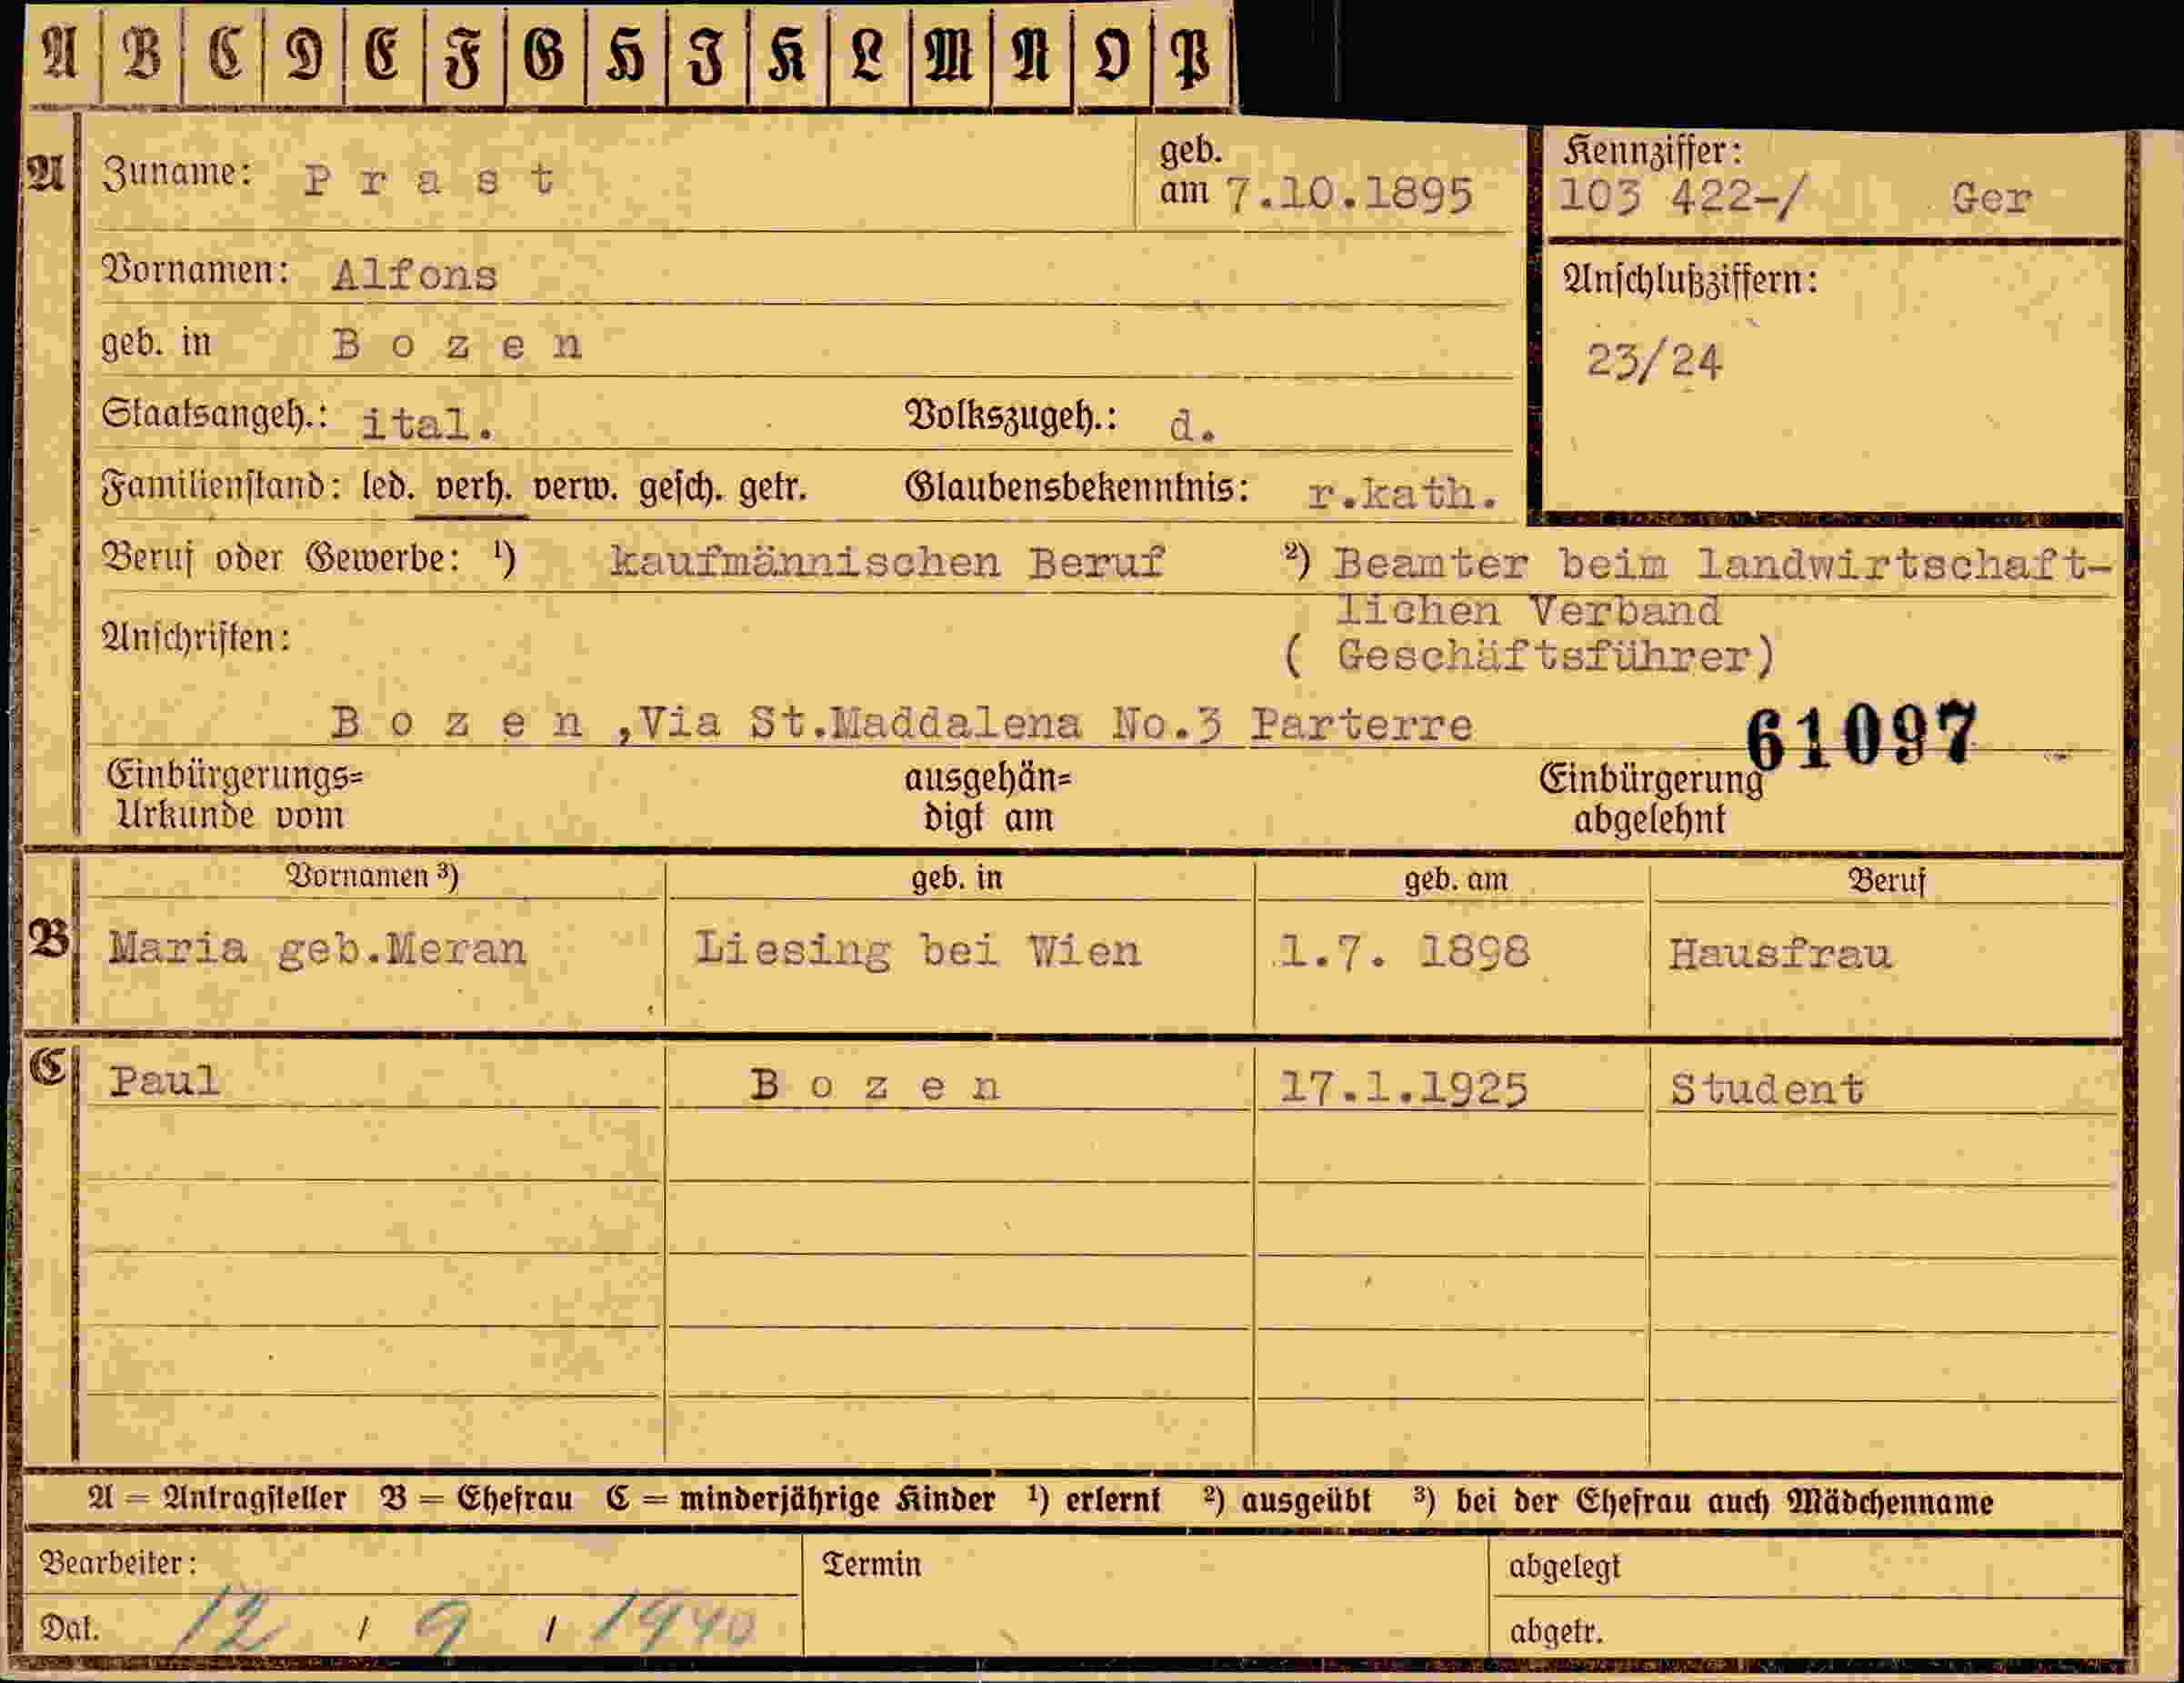 A B C D E F G H I K L M N O P
A Zuname: P r a s t geb. am 7.10.1895 Kennziffer: 103 422-/ Ger
Vornamen: Alfons
Anschlußziffern:
geb. in B o z e n
23/24
Staatsangeh.: ital. Volkszugeh.: d.
Familienstand: led. verh. verw. gesch. getr. Glaubensbekenntnis: r.kath.
Beruf oder Gewerbe: ¹) kaufmännischen Beruf ²) Beamter beim landwirtschaft-
lichen Verband
Anschriften: ( Geschäftsführer)
B o z e n ,Via St.Maddalena No.3 Parterre 61097
Einbürgerungs= ausgehän= Einbürgerung
Urkunde vom digt am abgelehnt
Vornamen ³) geb. in geb. am Beruf
B Maria geb.Meran Liesing bei Wien 1.7. 1898 Hausfrau
C Paul B o z e n 17.1.1925 Student
A = Antragsteller B = Ehefrau C = minderjährige Kinder ¹) erlernt ²) ausgeübt ³) bei der Ehefrau auch Mädchenname
Bearbeiter: Termin abgelegt
Dat. 12 / 9 / 1940 abgetr.